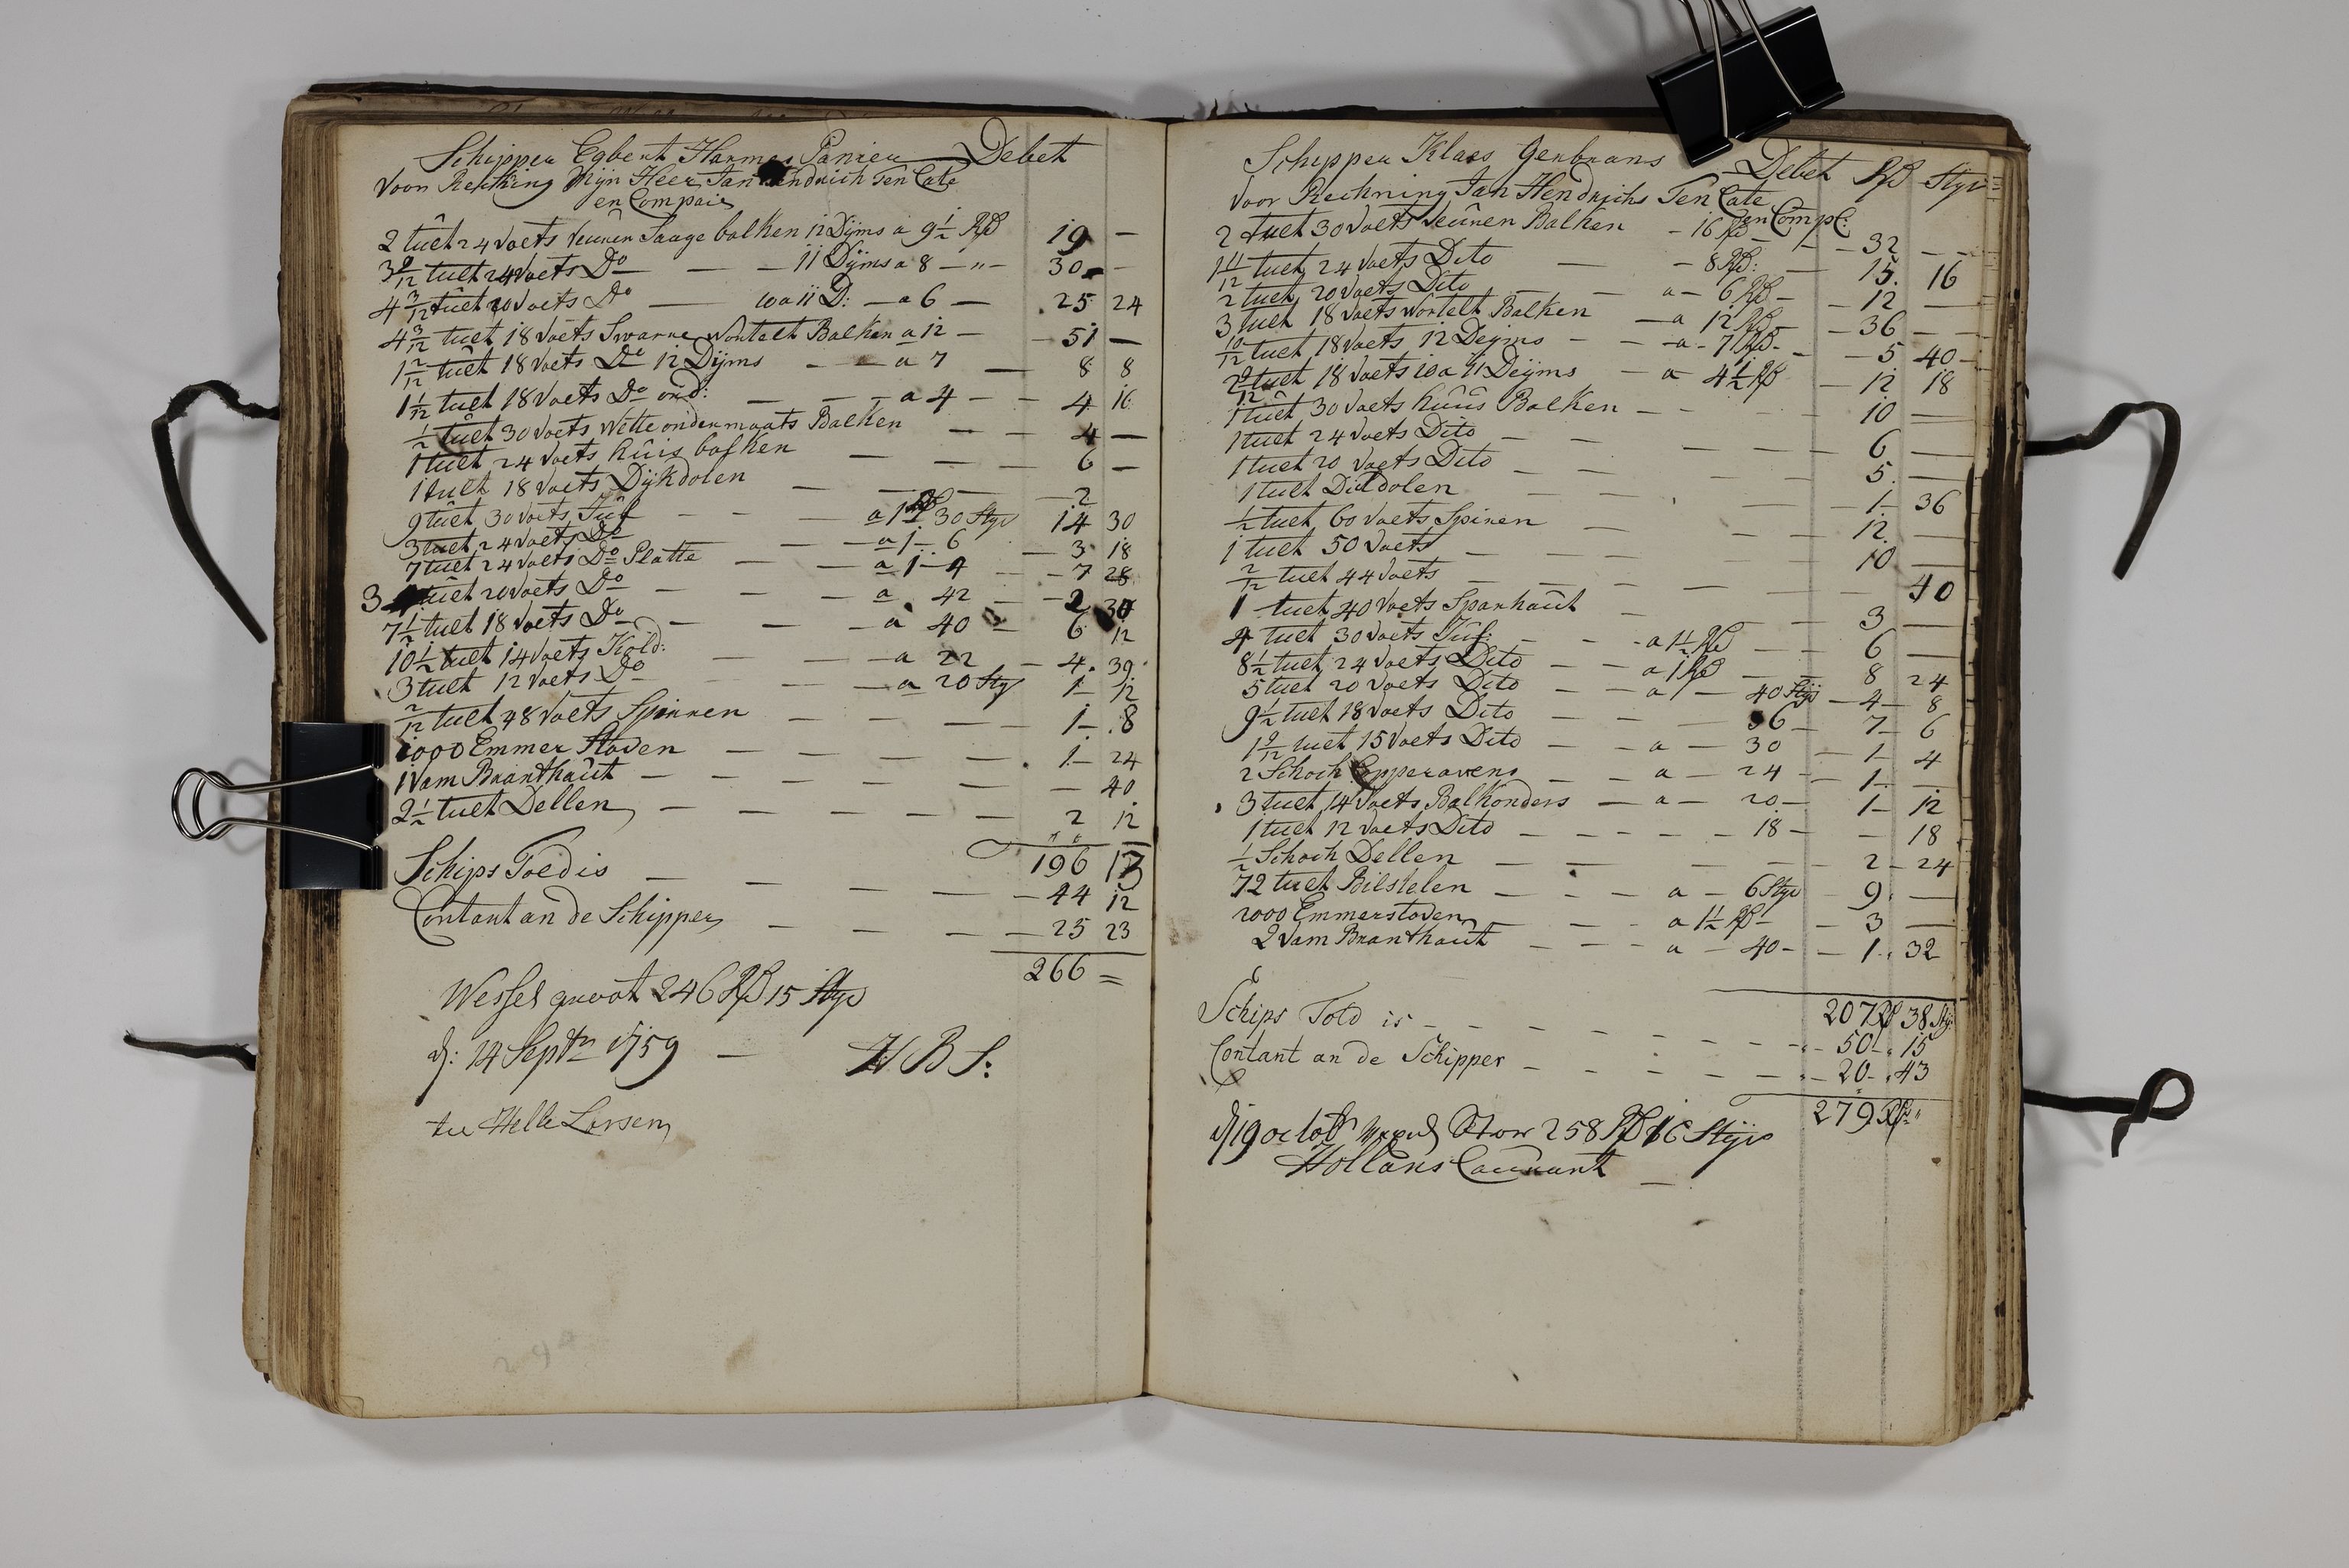 Schipper Egbert Harmes Panier Debet
Voor Rekking Mijn Heer Jan Hendrich Ten Cate
en Compais
2 tuet 24 Voets Veuren Saage balken 12 Dijms a 9½ Rd 19 —
3 9/12 tuet 24 Voets Do — — 11 Dijms a 8 — „ — 30 —
4 3/12 tuet 20 Voets Do — 10 a 11 D: — a 6 — 25 24
4 3/12 tuet 18 Voets Swarre Wortelt Balken a 12 — 51 —
1 2/12 tuet 18 Voets Do 12 Dijms — — a 7 — 8 8
1 1/12 tuet 18 Voets Do ond: — — — a 4 — — 4 16
½ tuet 30 Voets Witte ondermaats Balken — — 4 —
1 tuet 24 Voets huis balken — — — 6 —
1 tuet 18 Voets Dijkdolen — — — 2
9 tuet 30 Voets Juf — — — a 1 Rd 30 Styv 14 30
3 tuet 24 Voets Do — — a 1 — 6 — 3 18
7 tuet 24 Voets Do Platte — — a 1 — 4 — 7 28
3 tuet 20 Voets Do — — — a 42 — 2 30
7½ tuet 18 Voets Do — — — a 40 — 6 12
10½ tuet 14 Voets Kold: — — a 22 — 4 39
3 tuet 12 Voets Do — — — a 20 Sty 1 12
2/12 tuet 48 Voets Spieren — — — — 1 8
1000 Emmer Staven — — — — 1 24
1 Vam Branthaut — — — — — 40
2½ tuet Dellen — — — — — 2 12
196 13
Schips Toed is — — — — 44 12
Contant an de Schipper — — — — 25 23
266 =
Wessel groot 246 Rd 15 Styv
d: 14 Septbr 1759 — H B S:
ten Helle Larsen
Schipper Klaes Gerbrans — Debet Rd Styv
Voor Rechning Jan Hendrichs Ten Cate
en Comp:
2 tuet 30 Voets Veuren Balken — 16 Rd — — 32 —
1 11/12 tuet 24 Voets Dito — — 8 Rd: — 15. 16
2 tuet 20 Voets Dito — — a — 6 Rd — 12 —
3 tuet 18 Voets Wortelt Balken — a 12 Rd — 36 —
10/12 tuet 18 Voets 12 Deijms — — a — 7 Rd — — 5 40 —
2 9/12 tuet 18 Voets 10 a 11 Deijms — a 4½ Rd — 12 18
1 tuet 30 Voets huus Balken — — — 10 —
1 tuet 24 Voets Dito — — — — 6 —
1 tuet 20 Voets Dito — — — — 5. —
1 tuet Dikdolen — — — — 1 — 36
½ tuet 60 Voets Spiren — — — 12. —
1 tuet 50 Voets — — — — 10 —
2/12 tuet 44 Voets — — — — 40
1 tuet 40 Voets Sparhaut — — — 3 —
4 tuet 30 Voets Juf: — — a 1½ Rd — 6 —
8½ tuet 24 Voets Dito — — a 1 Rd — 8 24
5 tuet 20 Voets Dito — — a — 40 Stijv — 4 — 8
9½ tuet 18 Voets Dito — — 36 — 7 — 6
1 9/12 tuet 15 Voets Dito — — a — 30 — 1 — 4
2 Schoch Epperavens — — a — 24 — 1 — —
3 tuet 14 Voets Balkonders — a — 20 — 1 — 12
1 tuet 12 Voets Dito — — — — 18 — — 18
½ Schoch Dellen — — — — 2 — 24
72 tuet Bilstelen — — — a — 6 Styv 9 —
2000 Emmerstaven — — a 1½ Rd — — 3 —
2 Vam Branthaut — — — a — 40 — — 1 . 32
207 Rd 38 Sty
Schips Told is — — — — — — 50 — 15
Contant an de Schipper — — — — — 20 — 43
279 Rd
d 19 octobr Stor 258 Rd 16 Stijv
Hollans Courant —